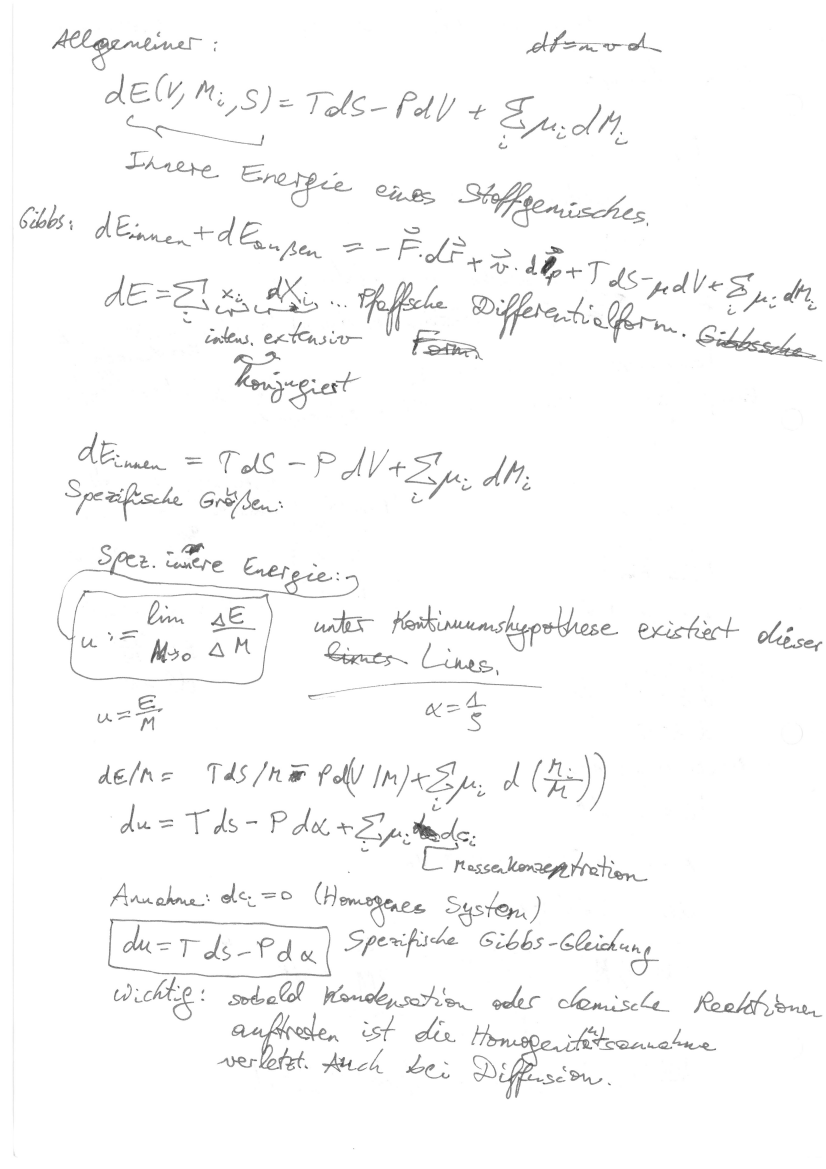 Allgemeiner: dP=m v d
dE(V, M_i, S) = TdS - PdV + Σ_i μ_i dM_i
Innere Energie eines Stoffgemisches.
Gibbs: dE_innen + dE_außen = -F⃗·dr⃗ + v⃗·dp⃗ + T dS - μ dV + Σ_i μ_i dM_i
dE = Σ_i x_i dX_i ... Pfaffsche Differentialform. Gibbssche
intens. extensiv Form.
konjugiert
dE_innen = TdS - P dV + Σ_i μ_i dM_i
Spezifische Größen:
Spez. innere Energie:
u := lim_{M→0} ΔE/ΔM unter Kontinuumshypothese existiert dieser
limes Limes.
u = E/M α = 1/ρ
dE/M = TdS/M - Pd(V/M) + Σ_i μ_i d(M_i/M))
du = Tds - Pdα + Σ_i μ_i dc_i
Massenkonzentration
Annahme: dc_i = 0 (Homogenes System)
du = T ds - P dα Spezifische Gibbs-Gleichung
Wichtig: sobald Kondensation oder chemische Reaktionen
auftreten ist die Homogenitätsannahme
verletzt. Auch bei Diffusion.